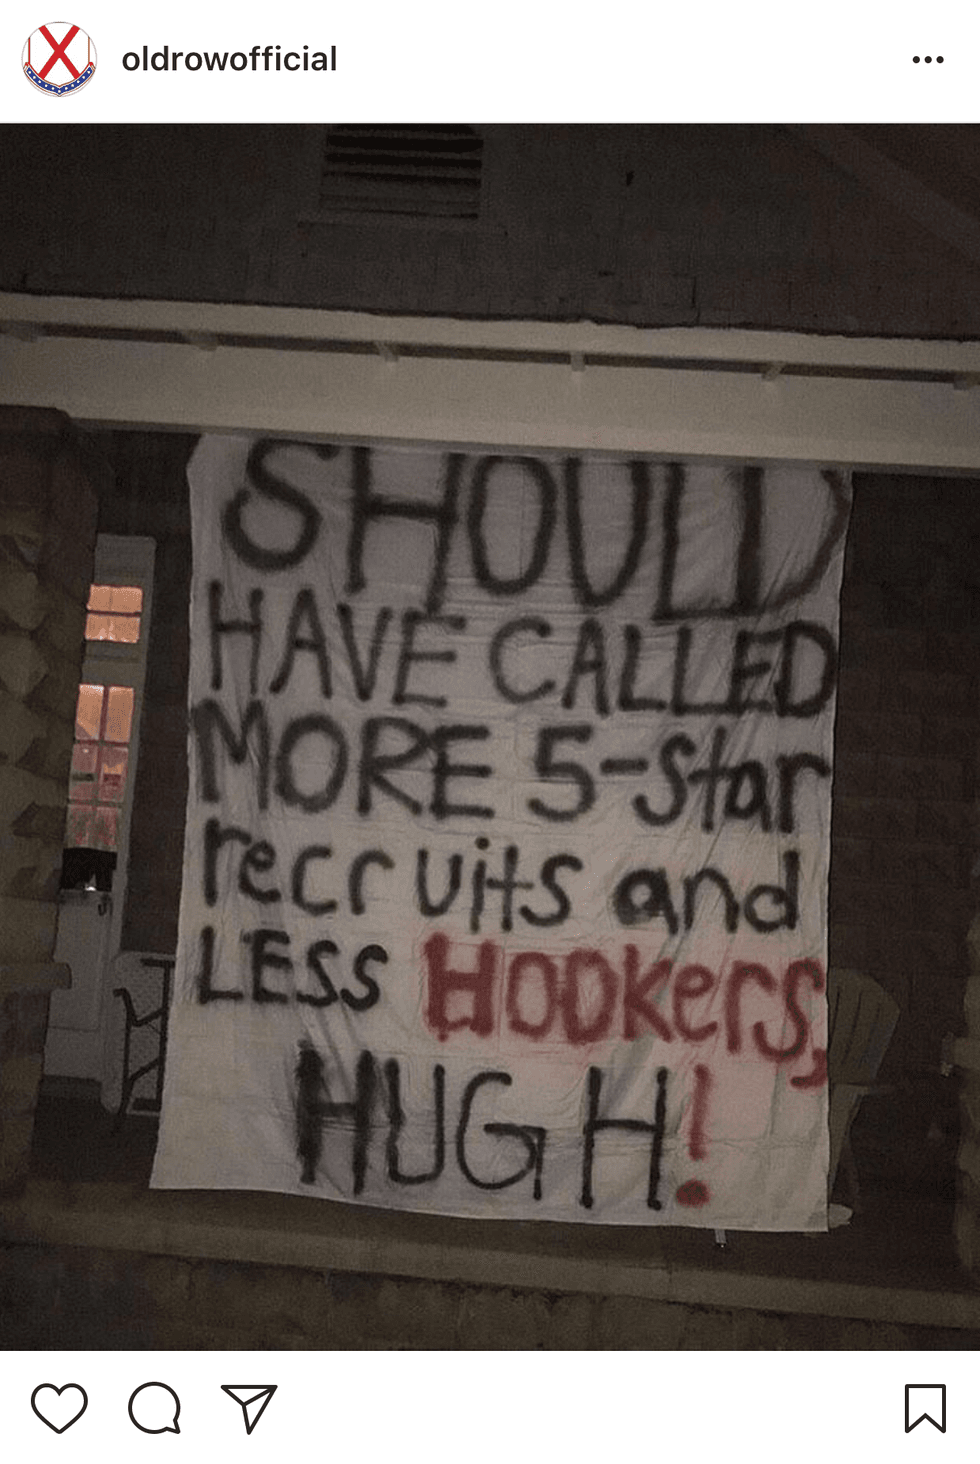 oldrowofficial
SHOULD
HAVE CALLED
MORE 5-Star
recruits and
LESS HOOKers,
HUGH!